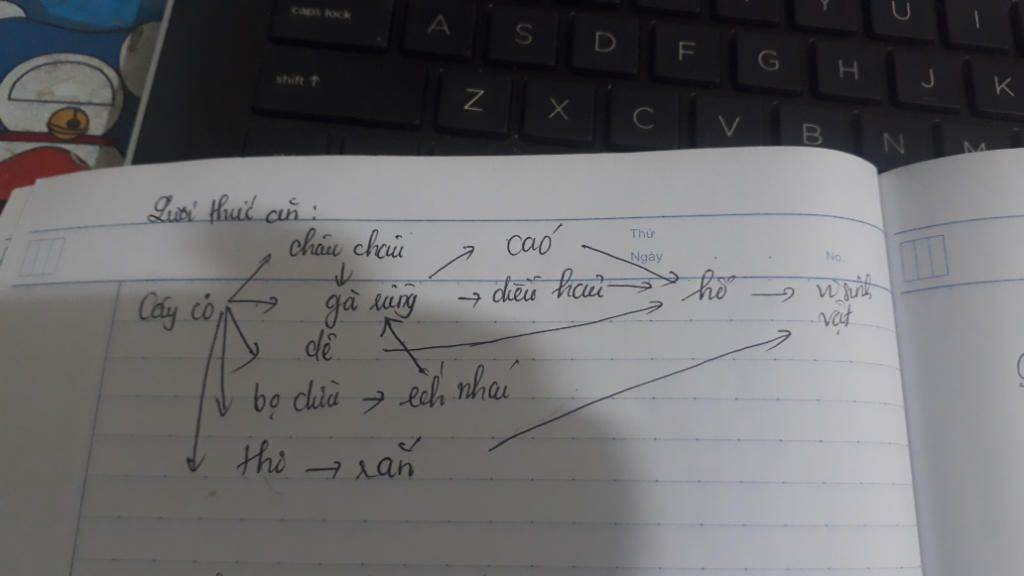 caps lock A S D F G H J K
Y U I
shift ↑ Z X C V B N M
Lưới thức ăn :
châu chấu → cáo
Thứ
Ngày
No.
Cây cỏ → gà rừng → diều hâu → hổ → vi sinh
vật
dê
bọ dừa → ếch nhái
thỏ → rắn